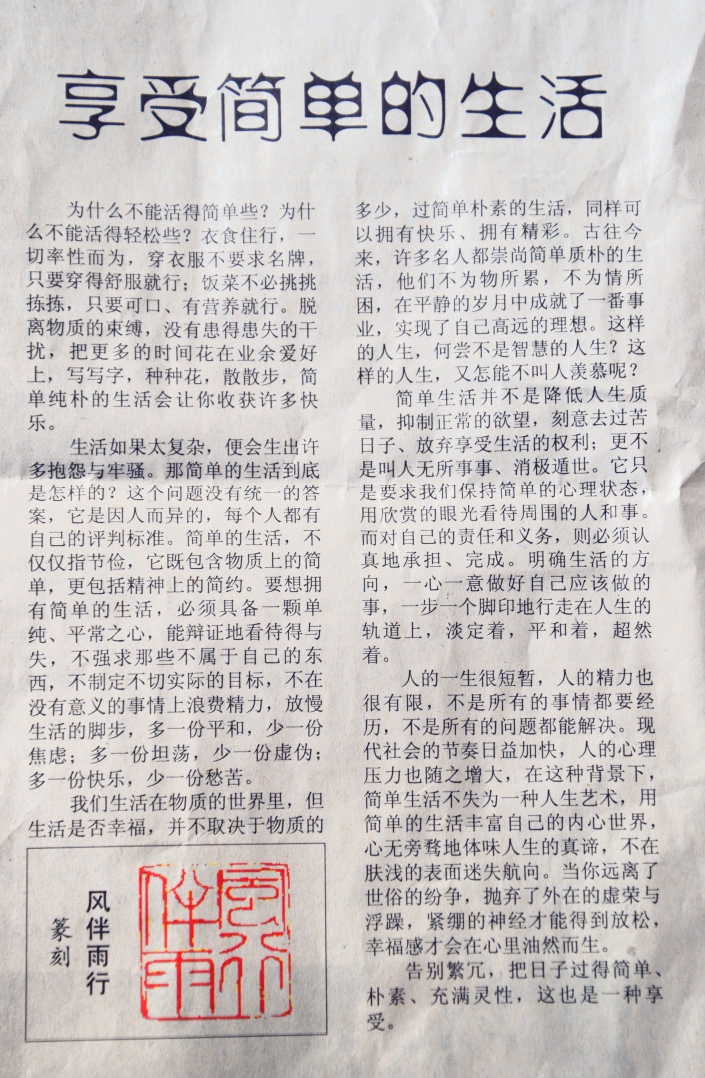 享受简单的生活
为什么不能活得简单些？为什
么不能活得轻松些？衣食住行，一
切率性而为，穿衣服不要求名牌，
只要穿得舒服就行；饭菜不必挑挑
拣拣，只要可口、有营养就行。脱
离物质的束缚，没有患得患失的干
扰，把更多的时间花在业余爱好
上，写写字，种种花，散散步，简
单纯朴的生活会让你收获许多快
乐。
生活如果太复杂，便会生出许
多抱怨与牢骚。那简单的生活到底
是怎样的？这个问题没有统一的答
案，它是因人而异的，每个人都有
自己的评判标准。简单的生活，不
仅仅指节俭，它既包含物质上的简
单，更包括精神上的简约。要想拥
有简单的生活，必须具备一颗单
纯、平常之心，能辩证地看待得与
失，不强求那些不属于自己的东
西，不制定不切实际的目标，不在
没有意义的事情上浪费精力，放慢
生活的脚步，多一份平和，少一份
焦虑；多一份坦荡，少一份虚伪；
多一份快乐，少一份愁苦。
我们生活在物质的世界里，但
生活是否幸福，并不取决于物质的
多少，过简单朴素的生活，同样可
以拥有快乐、拥有精彩。古往今
来，许多名人都崇尚简单质朴的生
活，他们不为物所累，不为情所
困，在平静的岁月中成就了一番事
业，实现了自己高远的理想。这样
的人生，何尝不是智慧的人生？这
样的人生，又怎能不叫人羡慕呢？
简单生活并不是降低人生质
量，抑制正常的欲望，刻意去过苦
日子、放弃享受生活的权利；更不
是叫人无所事事、消极遁世。它只
是要求我们保持简单的心理状态，
用欣赏的眼光看待周围的人和事。
而对自己的责任和义务，则必须认
真地承担、完成。明确生活的方
向，一心一意做好自己应该做的
事，一步一个脚印地行走在人生的
轨道上，淡定着，平和着，超然
着。
人的一生很短暂，人的精力也
很有限，不是所有的事情都要经
历，不是所有的问题都能解决。现
代社会的节奏日益加快，人的心理
压力也随之增大，在这种背景下，
简单生活不失为一种人生艺术，用
简单的生活丰富自己的内心世界，
心无旁骛地体味人生的真谛，不在
肤浅的表面迷失航向。当你远离了
世俗的纷争，抛弃了外在的虚荣与
浮躁，紧绷的神经才能得到放松，
幸福感才会在心里油然而生。
告别繁冗，把日子过得简单、
朴素、充满灵性，这也是一种享
受。
风伴雨行
篆刻
風行
伴雨